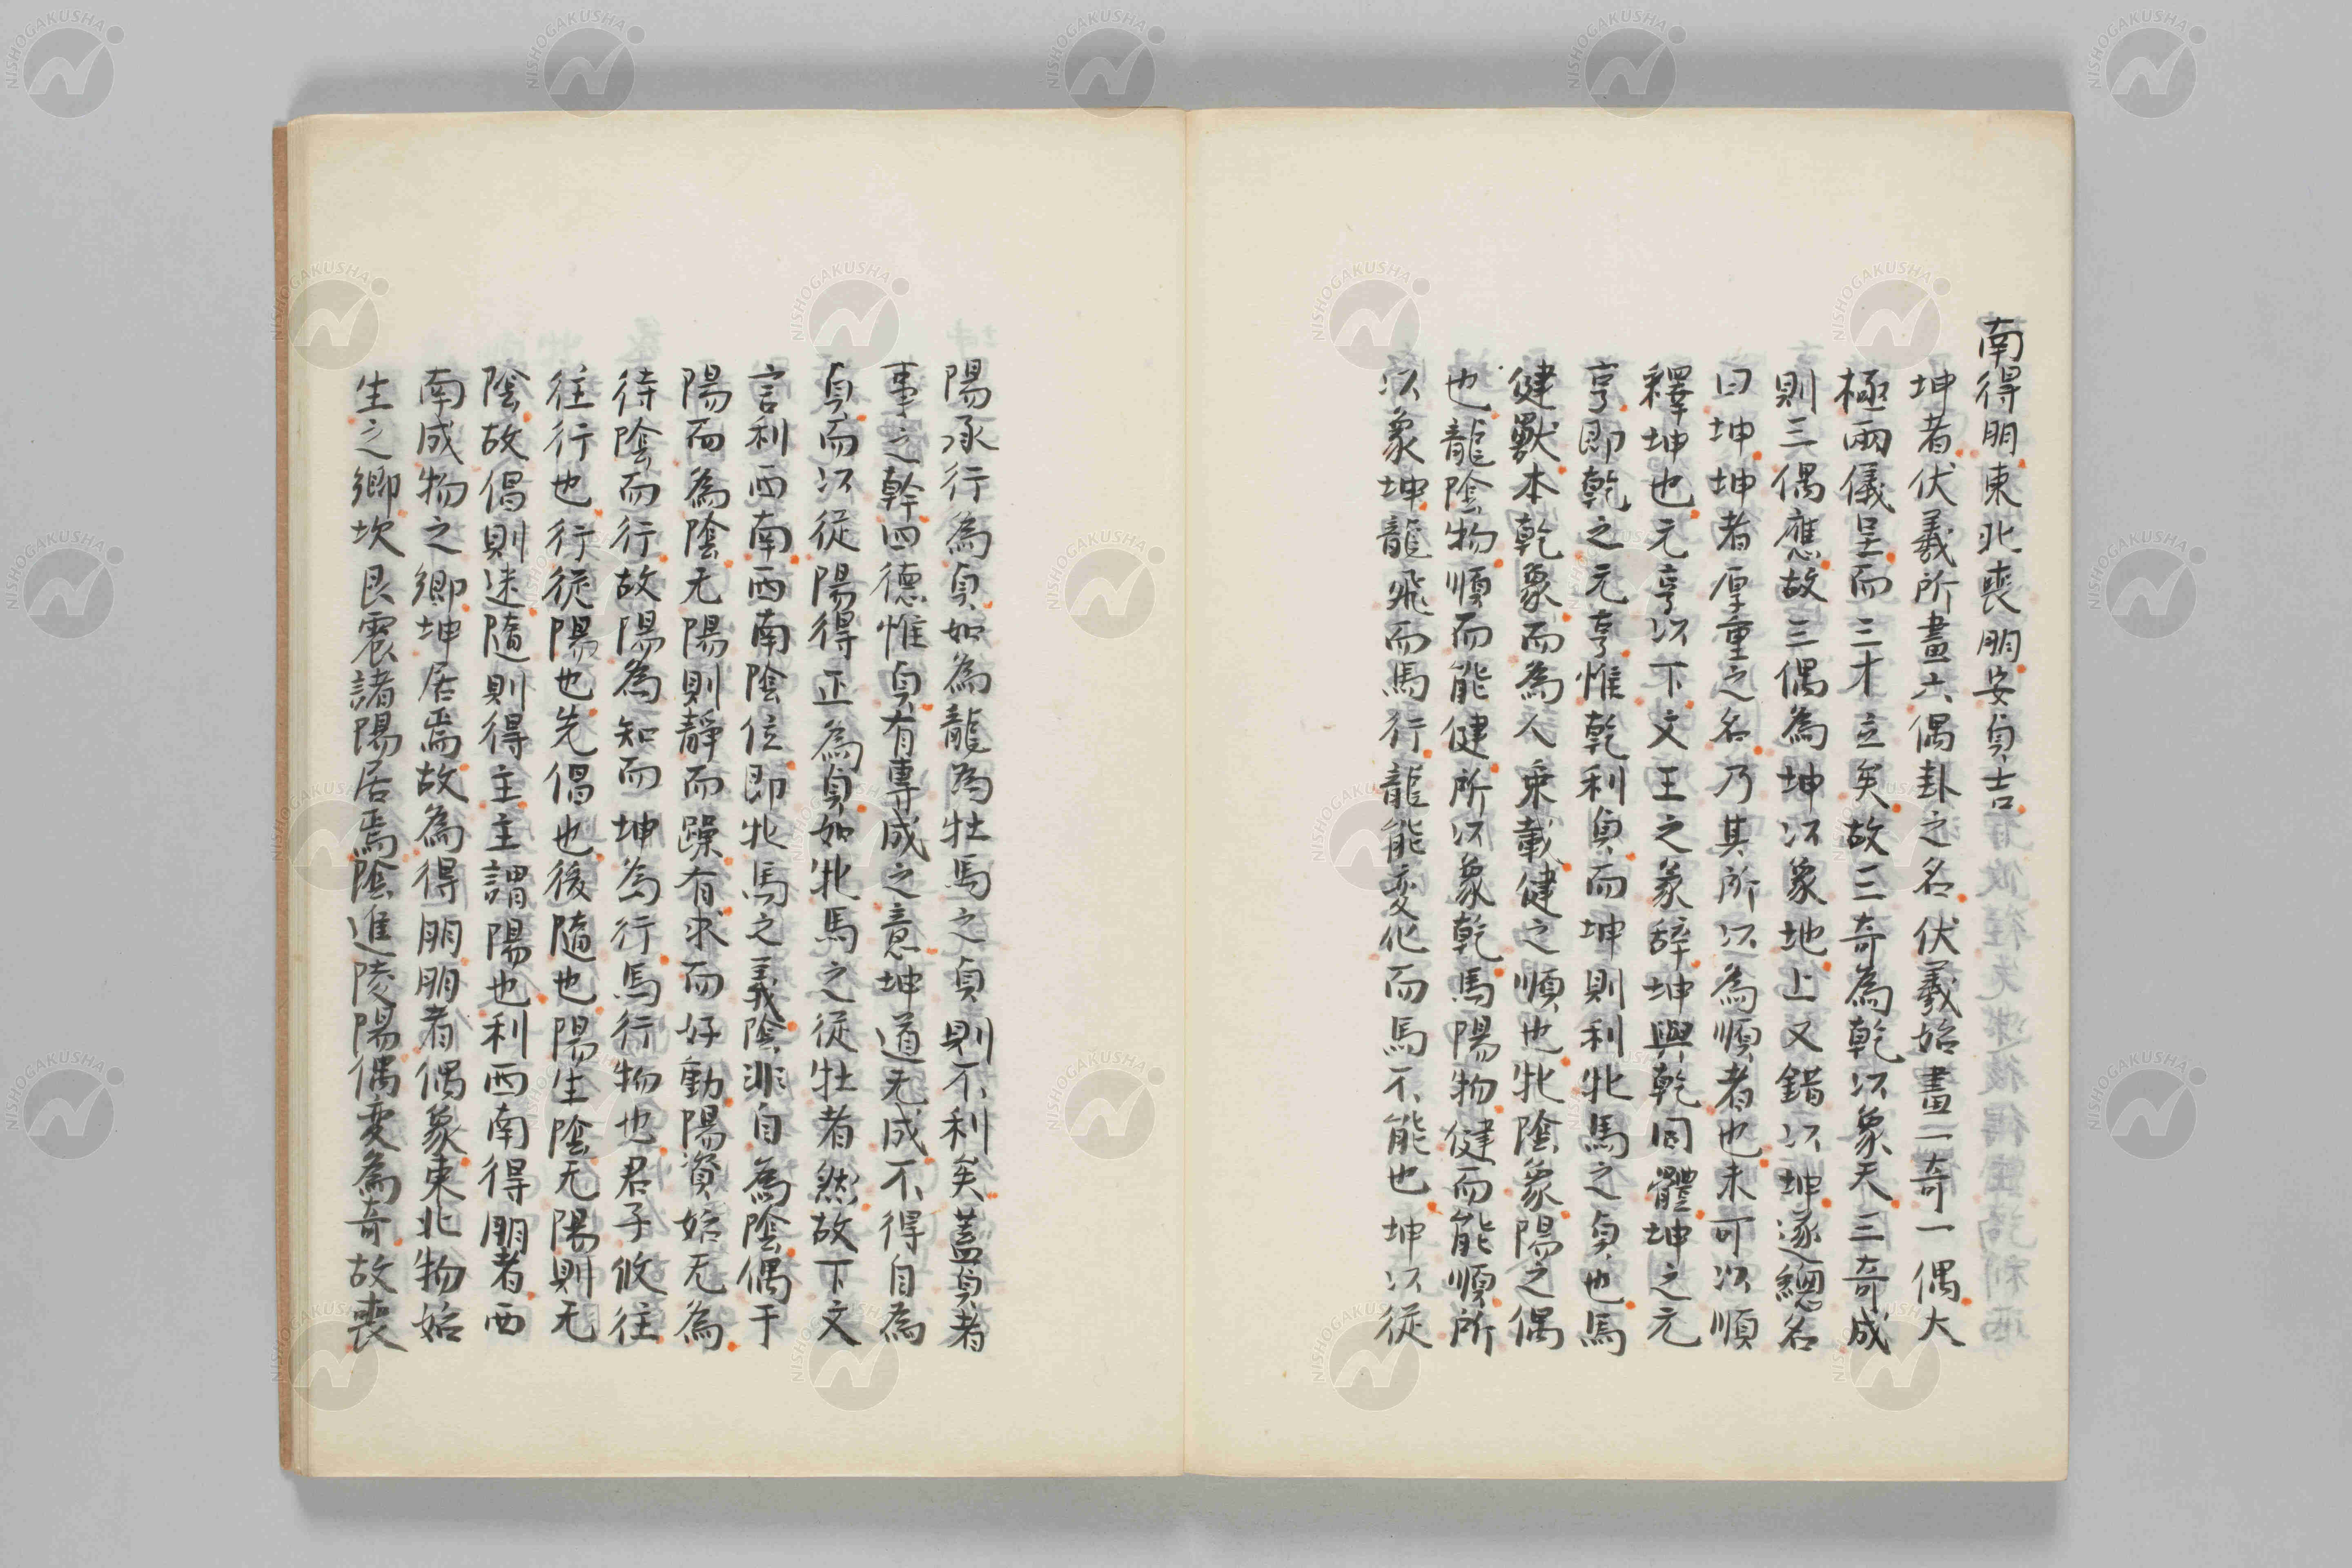 南得朋東北喪朋安貞吉
坤者伏羲所畫六偶卦之名伏羲始畫一奇一偶大
極兩儀呈而三才立矣故三奇為乾以象天三奇成
則三偶應故三偶為坤以象地上又錯以坤遂總名
曰坤坤者厚重之名乃其所以為順者也未可以順
釋坤也元亨以下文王之彖辞坤與乾同體坤之元
亨即乾之元亨惟乾利貞而坤則利牝馬之貞也馬
健獸本乾象而為人乗載健之順也牝陰象陽之偶
也龍陰物順而能健所以象乾馬陽物健而能順所
以象坤龍飛而馬行龍能変化而馬不能也坤以従
陽承行為貞如為龍為牡馬之貞則不利矣蓋貞者
事之幹四德惟貞有專成之意坤道无成不得自為
貞而以従陽得正為貞如牝馬之従牡者然故下文
言利西南西南陰位即牝馬之義陰非自為陰偶于
陽而為陰无陽則靜而躁有求而好動陽資始无為
待陰而行故陽為知而坤為行馬行物也君子攸往
往行也行従陽也先倡也後隨也陽生陰无陽則无
陰故倡則迷隨則得主主謂陽也利西南得朋者西
南成物之鄉坤居焉故為得朋朋者偶象東北物始
生之鄉坎艮震諸陽居焉陰進陵陽偶変為奇故喪
NISHOGAKUSHA